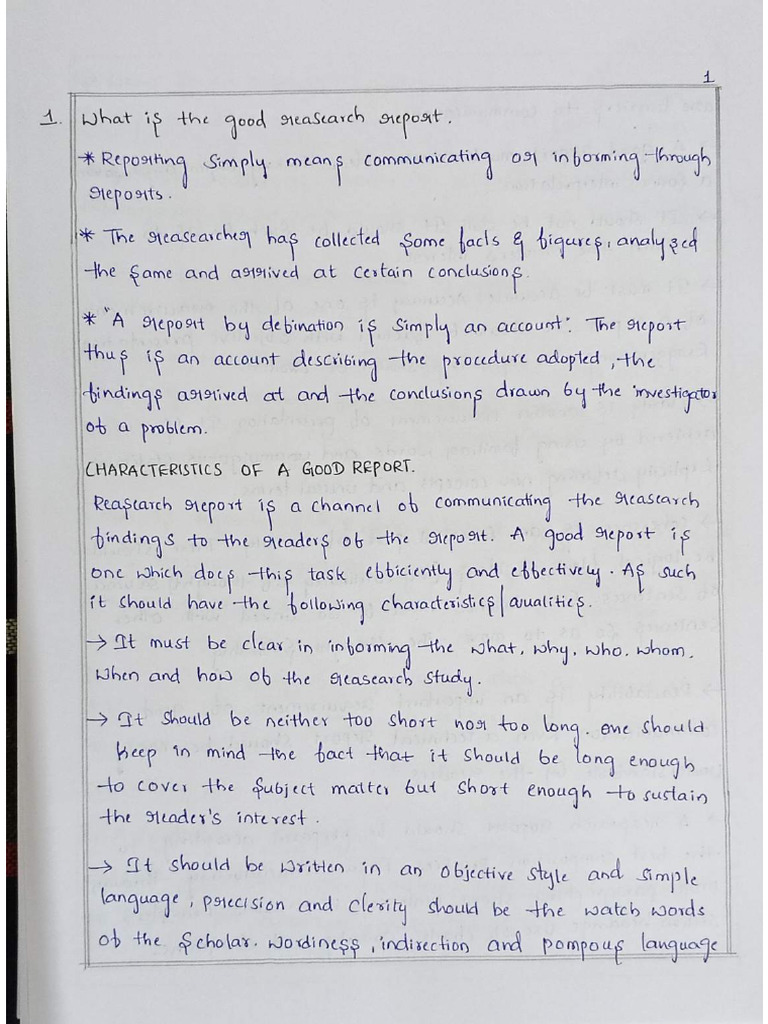 1
1. What is the good reasearch report.
* Reporting simply means communicating or informing through
reports.
* The reasearcher has collected some facts & figures, analyzed
the same and arrived at certain conclusions.
* "A report by defination is simply an account": The report
thus is an account describing the procedure adopted, the
findings arrived at and the conclusions drawn by the investigator
of a problem.
CHARACTERISTICS OF A GOOD REPORT.
Reasearch report is a channel of communicating the reasearch
findings to the readers of the report. A good report is
one which does this task efficiently and effectively. As such
it should have the following characteristics/aualities.
→ It must be clear in informing the what, why, who, whom,
when and how of the reasearch study.
→ It should be neither too short nor too long. one should
keep in mind the fact that it should be long enough
to cover the subject matter but short enough to sustain
the reader's interest.
→ It should be written in an objective style and simple
language, precision and clerity should be the watch words
of the scholar. wordiness, indirection and pompous language